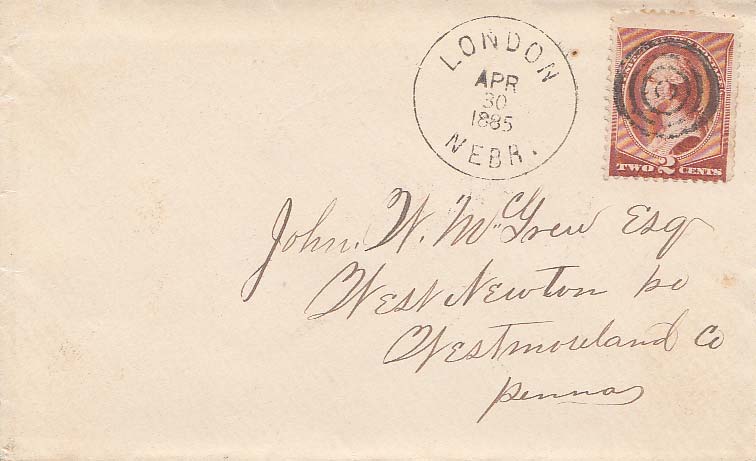 LONDON
APR
30
1885
NEBR.
TWO 2 CENTS
John. W. McGrew Esq
West Newton po
Westmoreland Co
Penna